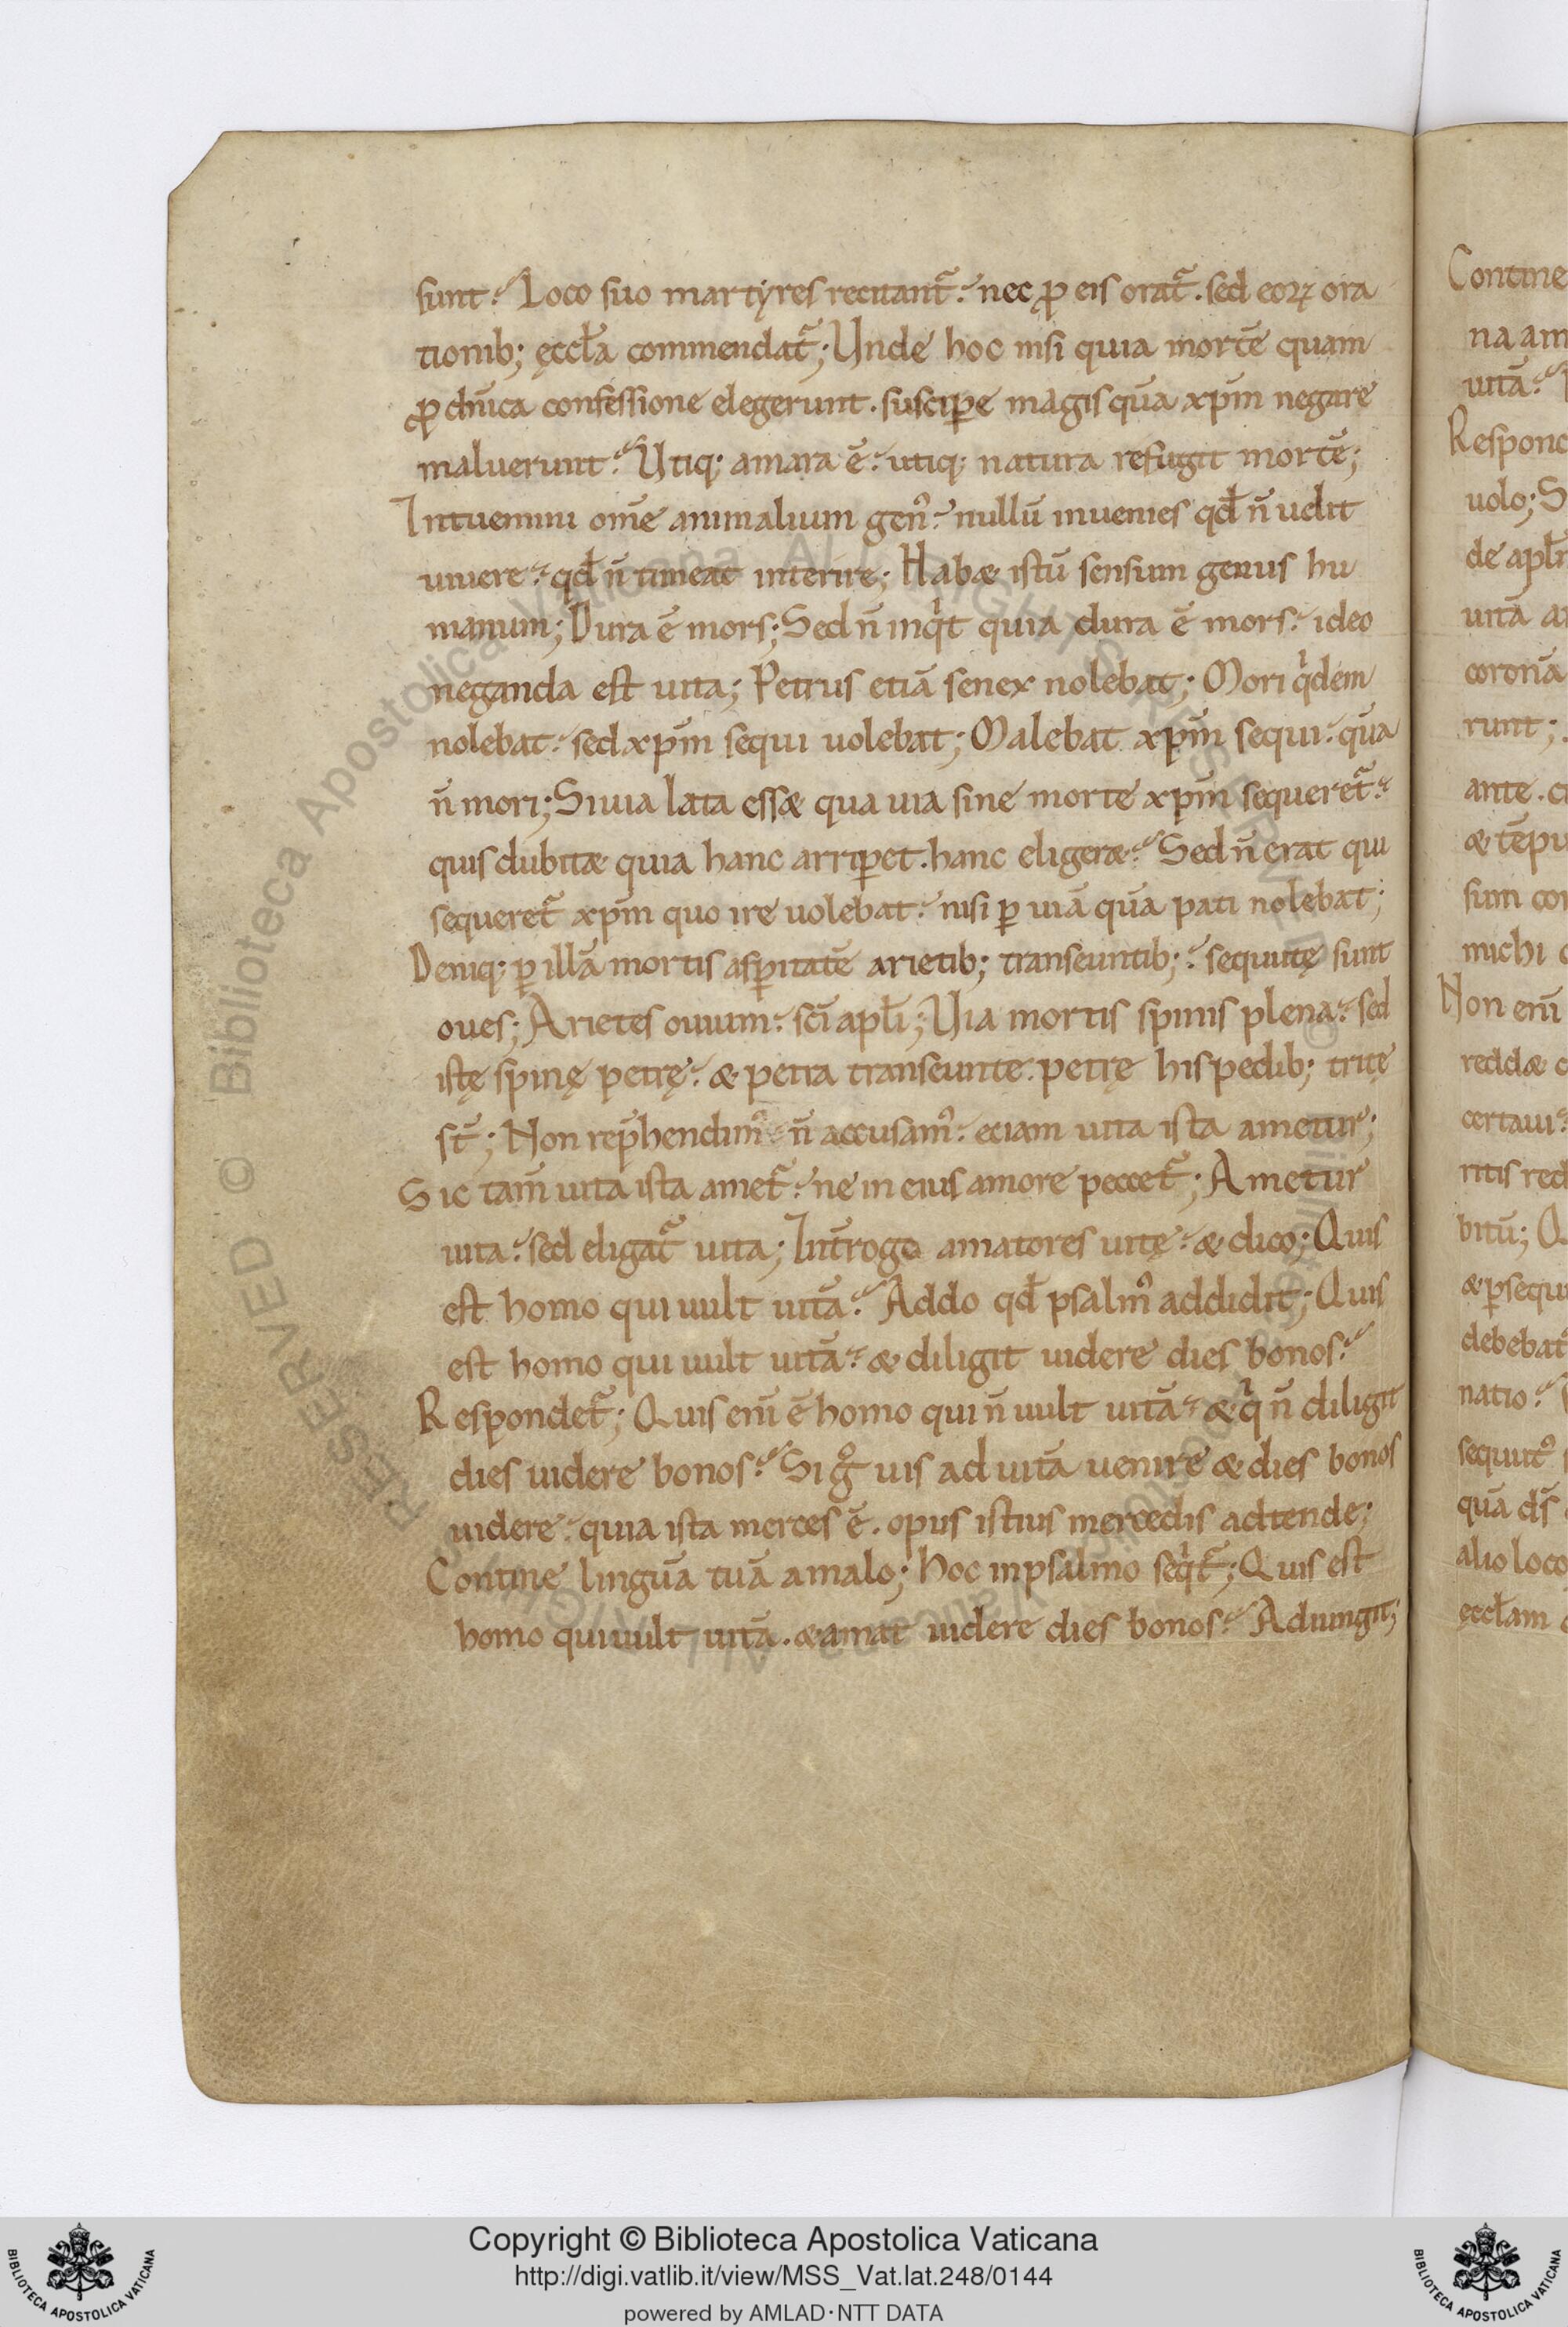 sunt? Loco suo martyres recitant̃. nec ꝓ eis orat̃. sed eoꝝ ora
tionib; ęccła commendat̃; Unde hoc nisi quia mortē quam
ꝓ dn̄ica confessione elegerunt. suscipe magis quā xpm̄ negare
maluerunt? Utiq; amara ē. utiq; natura refugit mortē;
Intuemini om̄e animalium gen᷒. nullū inuenies qđ n̄ uelit
uiuere. qđ n̄ timeat interire; Habæ istū sensum genus hu
manum; Dura ē mors; Sed n̄ inqͥt quia dura ē mors. ideo
neganda est uita; Petrus etiā senex nolebat; Mori qͥdem
nolebat. sed xpm̄ sequi uolebat; Malebat xpm̄ sequi. quā
n̄ mori; Si uia lata essæ qua uia sine morte xpm̄ sequeret̃.
quis dubitæ quia hanc arriꝑet. hanc eligeræ? Sed n̄ erat qui
sequeret̃ xpm̄ quo ire uolebat. nisi ꝑ uiā quā pati nolebat;
Deniq; ꝑ illā mortis asꝑitatē arietib; transeuntib;. sequutę sunt
oues; Arietes ouium. sc̄i apłi; Uia mortis spinis plena. sed
istę spinę petrę. & petra transeunte petrę his pedib; tritę
st̄; Non rep̄hendim᷒. n̄ accusam᷒. eciam uita ista ametur;
Sic tam̄ uita ista amet̃. ne in eius amore peccet̃; Ametur
uita. sed eligat̃ uita; Int̄rogo amatores uitę. & dico; Quis
est homo qui uult uitā? Addo qđ psalm᷒ addidit; Quis
est homo qui uult uitā. & diligit uidere dies bonos?
Respondet̃; Quis eni̅ ē homo qui n̄ uult uitā. & qͥ n̄ diligit
dies uidere bonos? Si gͦ uis ad uitā uenire & dies bonos
uidere. quia ista merces ē. opus istius mercedis adtende;
Contine linguā tuā a malo; Hoc in psalmo seqͥt̃; Quis est
homo qui uult uitā. & amat uidere dies bonos? Adiungit;
Contine
na am
uitā?
Respond
uolo; S
de apł
uitā a
coronā
runt;
ante. c
& tēpu
sum con
michi
Non eni̅
reddæ
certaui
ritis red
bitū; Q
& ꝑsequ
debebat
natio?
sequut᷒
quā ds̄
alio loco
ęccłam
RESERVED © Biblioteca Apostolica Vaticana ALL RIGHTS RESERVED ©
Copyright © Biblioteca Apostolica Vaticana
http://digi.vatlib.it/view/MSS_Vat.lat.248/0144
powered by AMLAD·NTT DATA
BIBLIOTECA APOSTOLICA VATICANA
BIBLIOTECA APOSTOLICA VATICANA